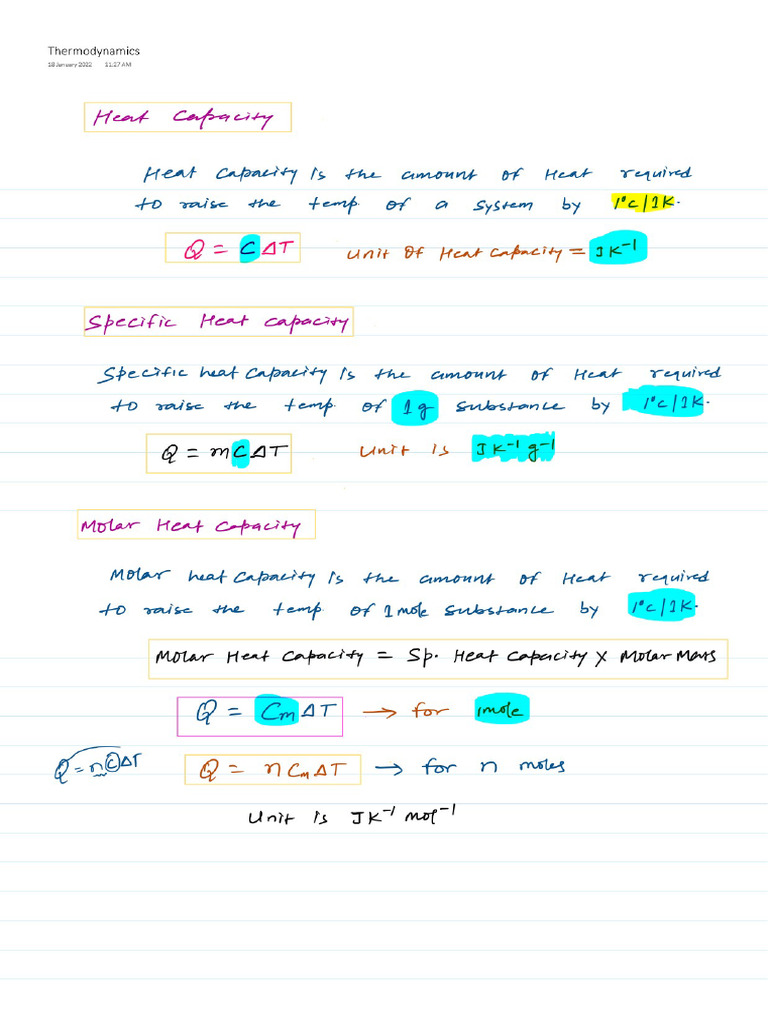 Thermodynamics
18 January 2022 11:27 AM
Heat Capacity
Heat Capacity is the amount of Heat required
to raise the temp. of a system by 1°C/1K.
Q = CΔT Unit Of Heat Capacity = JK⁻¹
Specific Heat Capacity
Specific heat Capacity is the amount of Heat required
to raise the temp. of 1g substance by 1°C/1K.
Q = mCΔT Unit is JK⁻¹g⁻¹
Molar Heat Capacity
Molar heat Capacity is the amount of Heat required
to raise the temp of 1 mole substance by 1°C/1K.
Molar Heat Capacity = Sp. Heat Capacity × Molar Mass
Q = CmΔT → for 1mole
Q = nCΔT Q = nCmΔT → for n moles
Unit is JK⁻¹ mol⁻¹